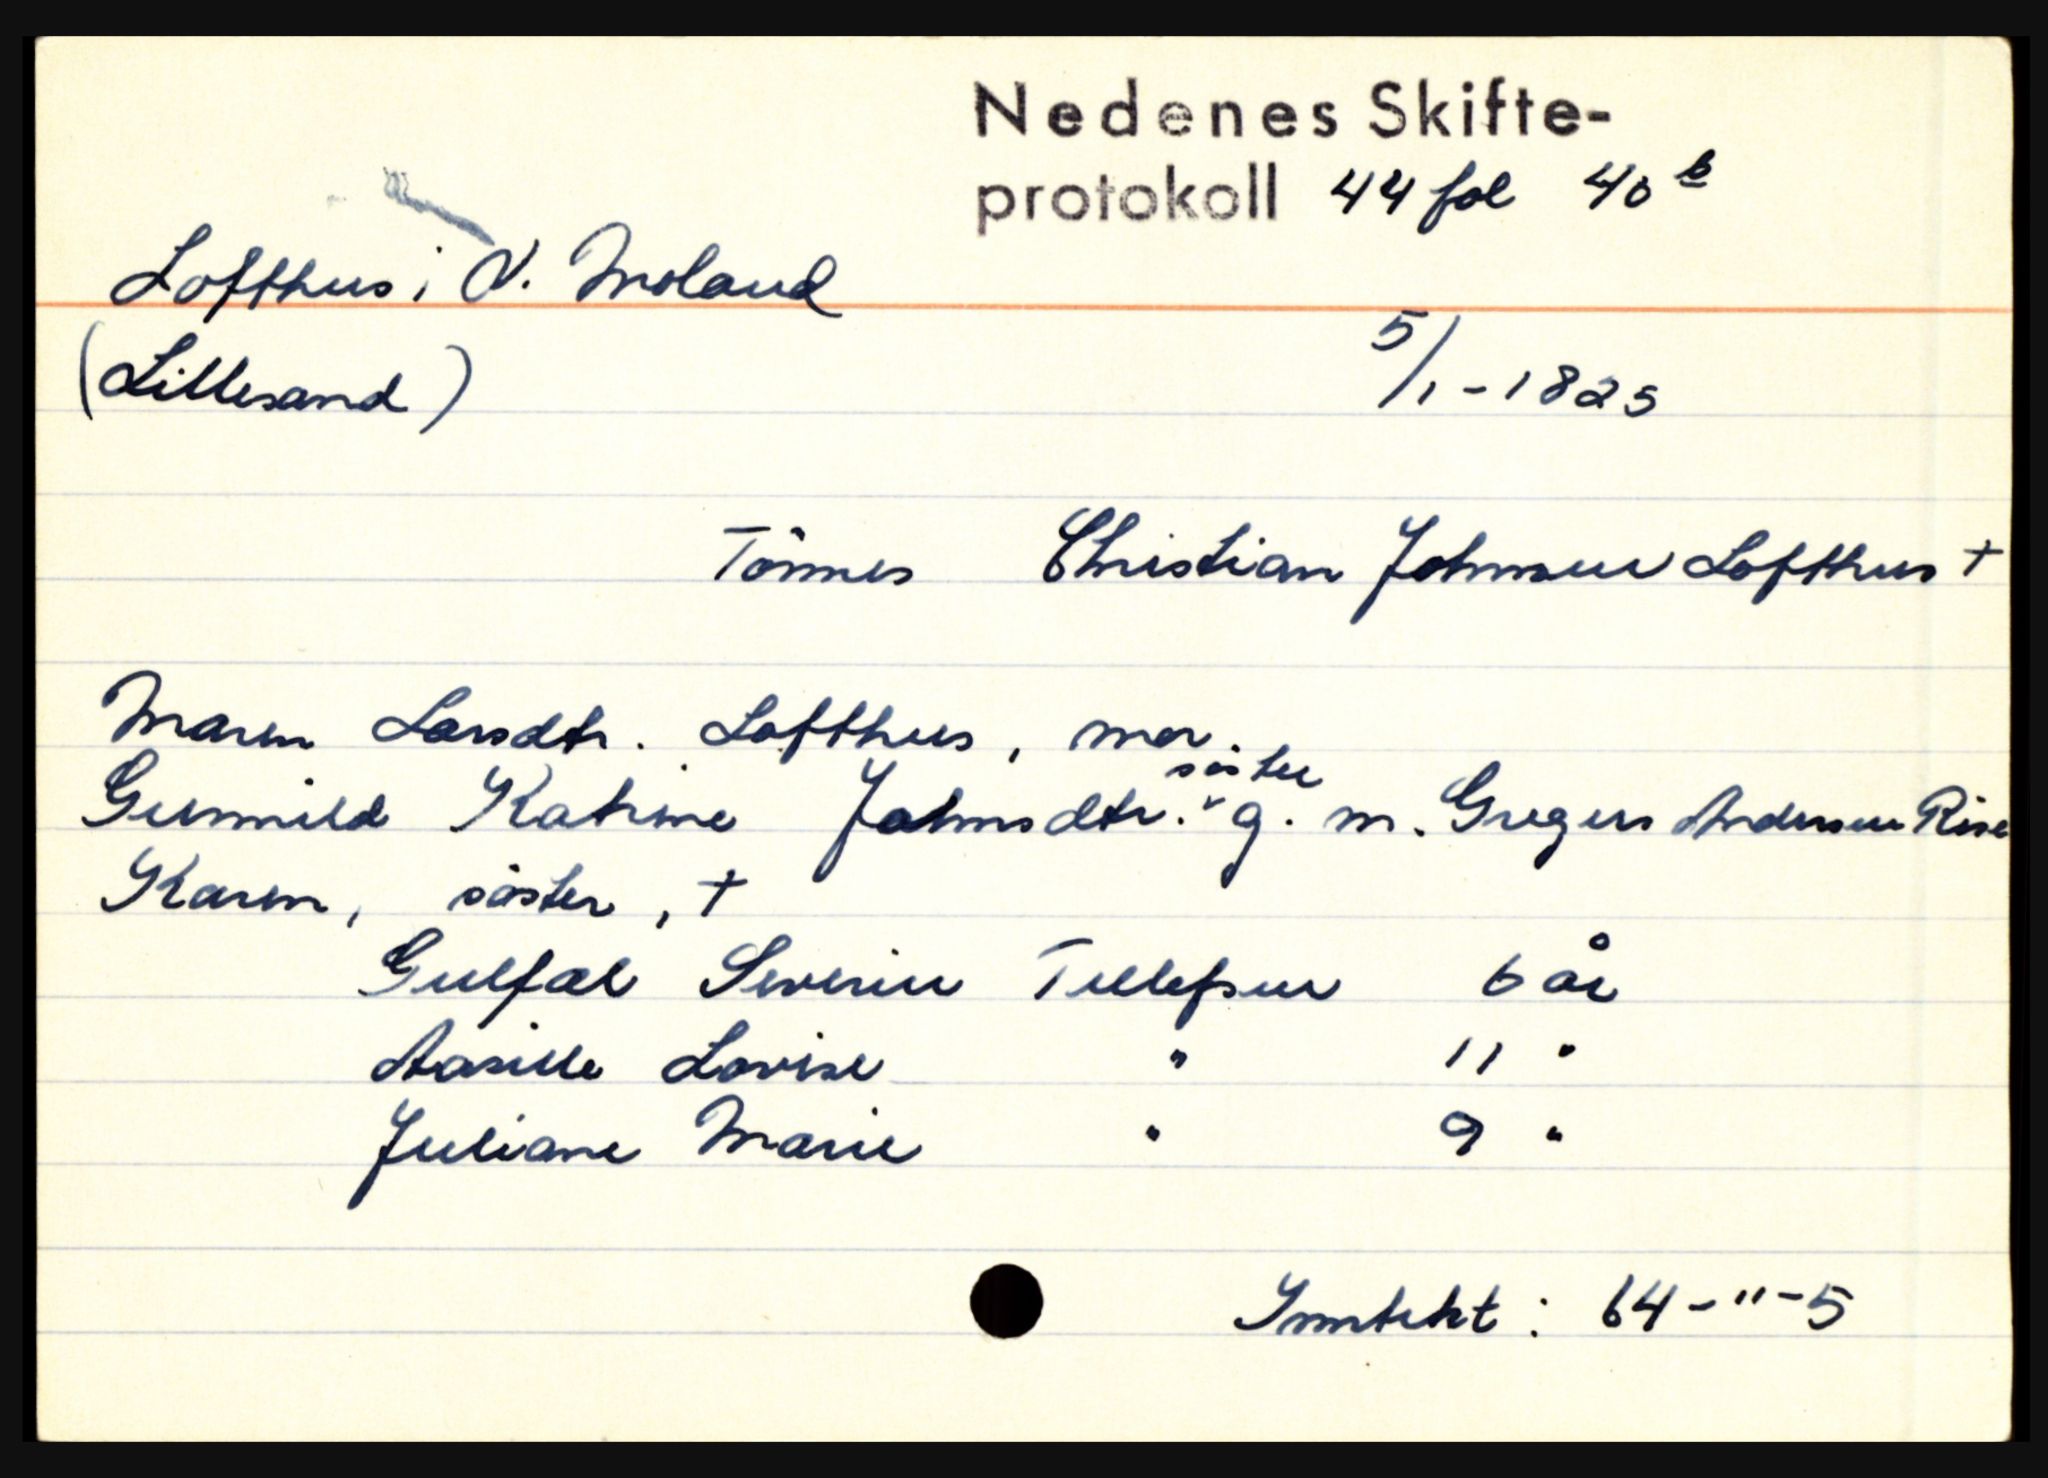 Nedenes Skifte-
protokoll 44 fol 40 b
Lofthus i V. Moland
(Lillesand)
5/1 - 1825
Tönnes Christian Johnsen Lofthus †
Maren Larsdtr. Lofthus, mor.
söster
Gunnild Katrine Johnsdtr. v g. m. Gregers Andersen Rise
Karen, söster, †
Gulfæl Severin Tellefsen 6 år
Aasille Lovise " 11 "
Juliane Marie " 9 "
Inntekt : 64 - " - 5